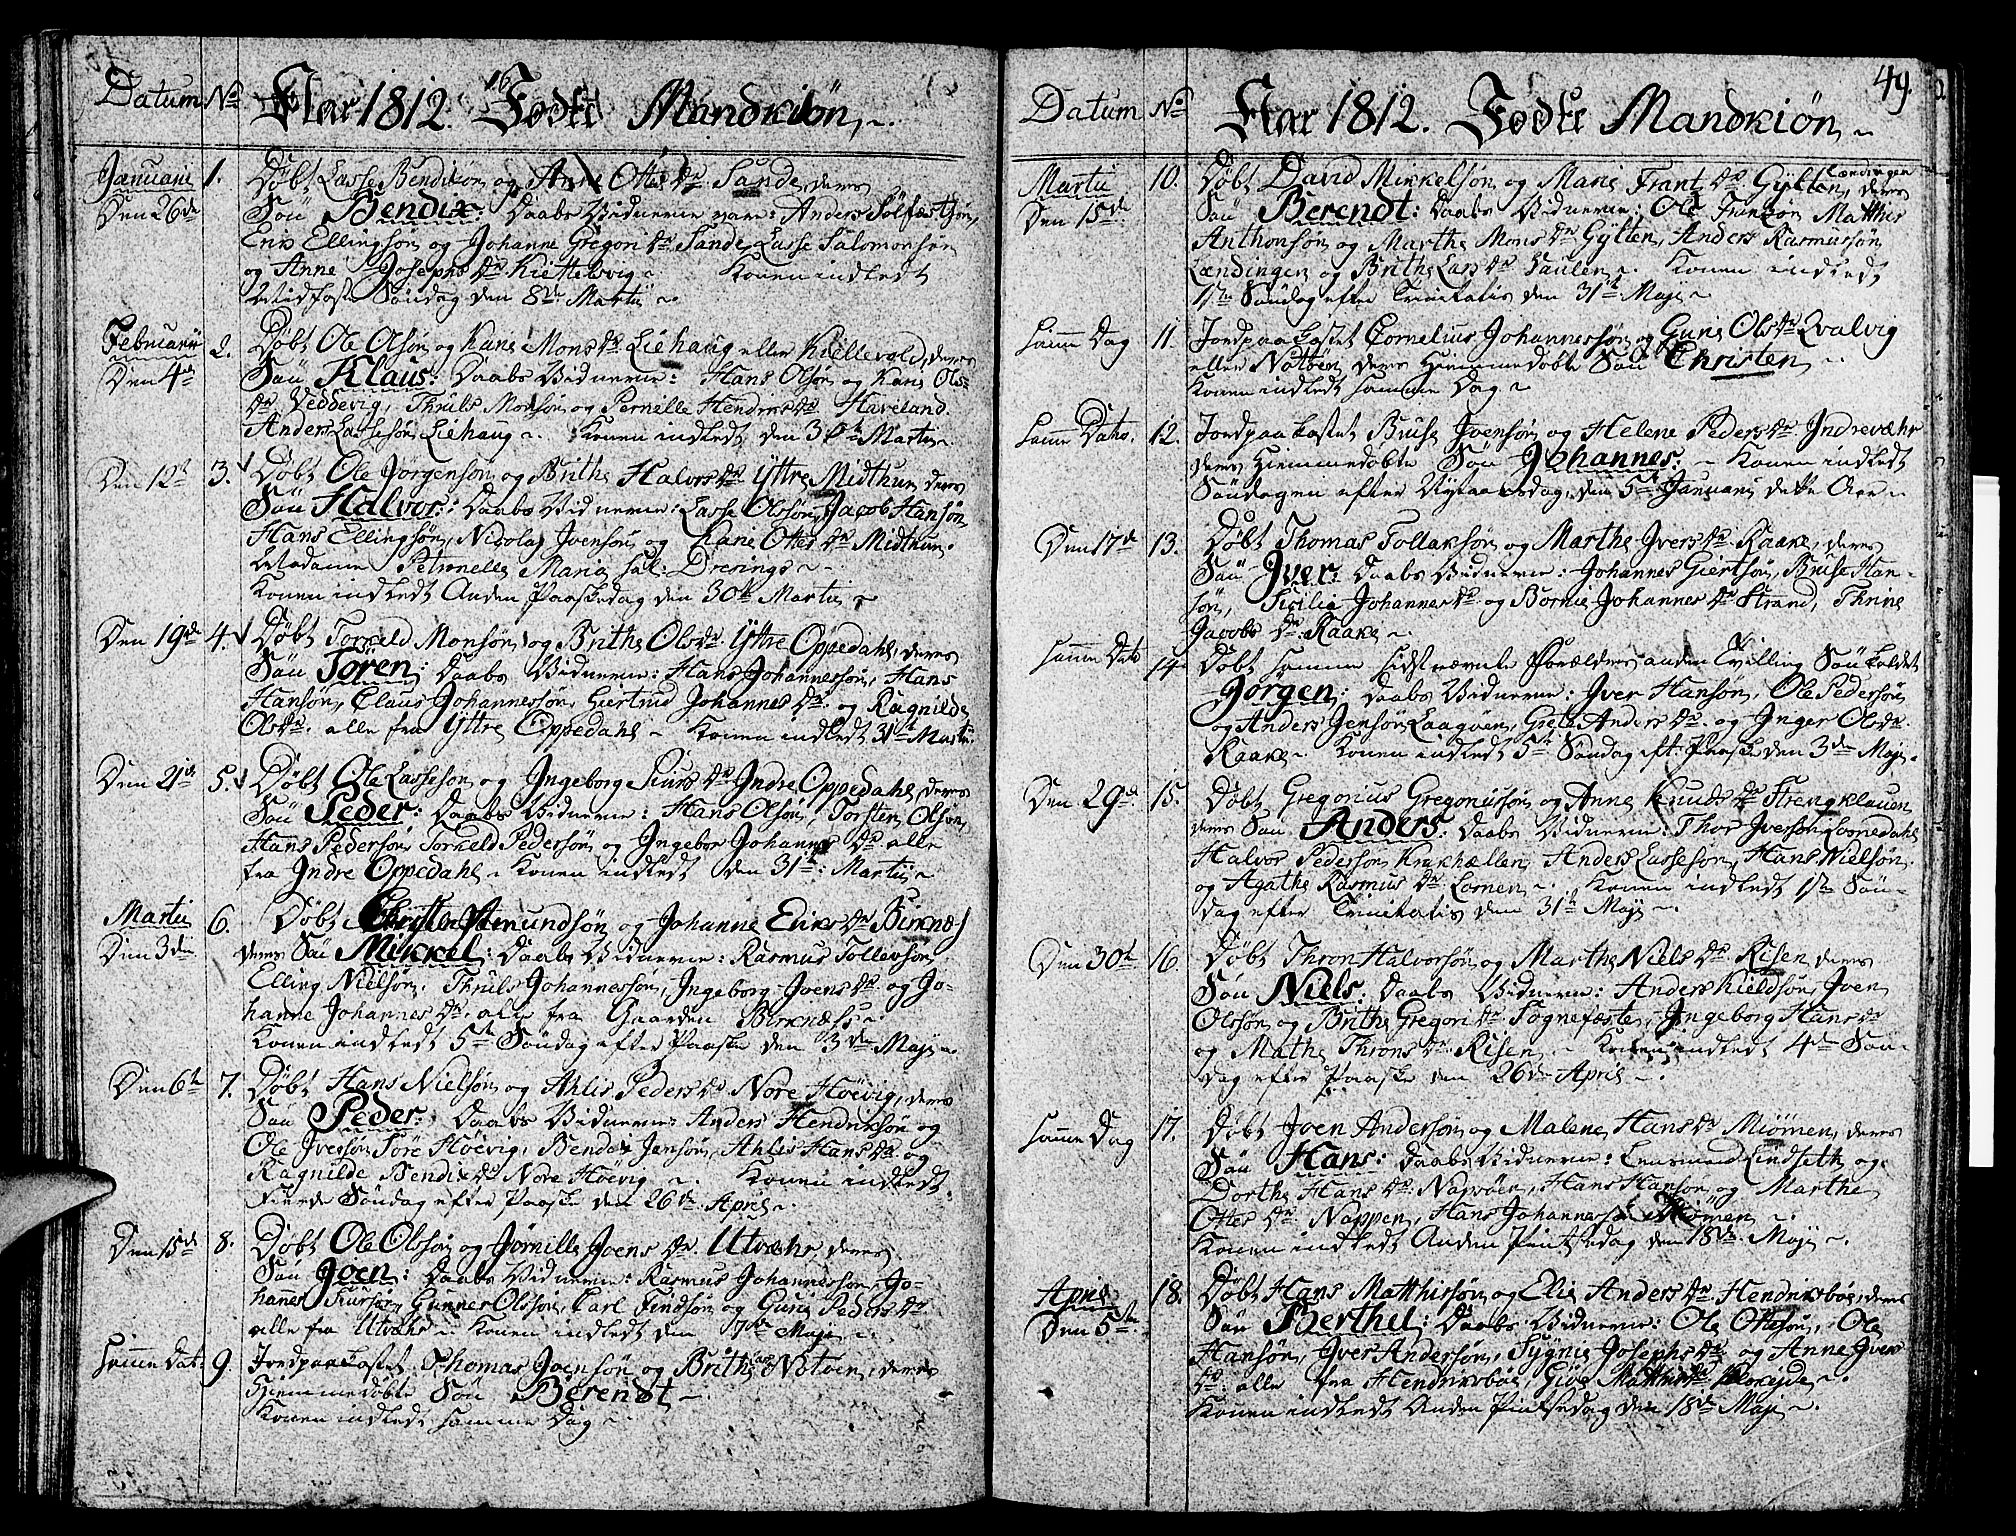 Datum No Aar 1812. Fødte Mandkiön
Januarii 1. Döbt Lasse Bendixön og Anne Ottes Dr. Sande, deres
Den 26de Sön Bendix: Daabs Vidnerne vare: Anders Solfæstsön,
Erik Ellingsön og Johanne Gregori Dr. Sande, Lasse Salomonsön
og Anne Josephs Dr. Kiettelsvig. Konen indledt
Midfaste Söndag den 8de Martii
Februarii 2. Döbt Ole Olsön og Kari Mons Dr. Liehaug eller Kiellevold, deres
Den 4de Sön Klaus: Daabs Vidnerne: Hans Olsön og Kari Ols
Dr. Veddevig, Thruls Monsön og Pernille Hendriks Dr. Haveland.
Anders Lassesön Liehaug. Konen indledt den 30th Martii
Den 12t 3. Döbt Ole Jörgensön og Brithe Halvors Dr. Yttre Midthun, deres
Sön Halvor: Daabs Vidnerne: Lasse Olssön, Jacob Hansön,
Hans Ellingsön, Nicolaj Joensön og Kari Ottes Dr. Midthun.
Madame Petronelle Maria sal. Drerings
Konen indledt Anden Paaskedag den 30th Martii
Den 19de 4. Döbt Torkeld Monsön og Brithe Ols Dr. Yttre Oppedahl, deres
Sön Sören: Daabs Vidnerne: Hans Johannessön, Hans
Hansön, Claus Johannessön, Giertrud Johannes Dr. og Ragnilde
Ols Dr. alle fra Yttre Oppedahl. Konen indledt 31th Martii.
Den 21de 5. Döbt Ole Lassesön og Ingeborg Siurs Dr. Indre Oppedahl, deres
Sön Peder: Daabs Vidnerne: Hans Olsön, Torsten Olsön,
Hans Pedersön, Torkeld Pedersön og Ingebor Johannes Dr. alle
fra Indre Oppedahl. Konen indledt den 31th: Martii
Martii 6. Döbt Amundsön og Johanne Eriks Dr. Birknæs
Den 3de deres Sön Mikkel: Daabs Vidnerne: Rasmus Tollevsön,
Elling Nielsön, Thruls Johannessön, Ingeborg Joens Dr. og Jo-
hanne Johannes Dr. alle fra Gaarden Birknæss.
Konen indledt 5te Söndag efter Paaske den 3de Maji
Den 6t 7. Döbt Hans Nielsön og Ahlis Peders Dr. Nore Höevig, deres
Sön Peder: Daabs Vidnerne: Anders Hendriksön og
Ole Iversön Söre Höevig, Bendix Jensön, Ahlis Hans Dr. og
Ragnilde Bendix Dr. Nore Höevig. Konen indledt
Fierde Söndag efter Paaske den 26de April
Den 15de 8. Döbt Ole Olssön og Jörnille Joens Dr. Utvæhr, deres
Sön Joen: Daabs Vidnerne: Rasmus Johannessön, Jo-
hannes Siursön, Gunner Olssön, Carl Findsön og Guri Peders Dr.
alle fra Utvæhr. Konen indledt den 7de Maji
Samme Dat: 9. Jordpaakastet Thomas Joensön og Brithe Notöen, deres
Hjemmedöbte Sön Berendt.
Konen indledt samme Dag
49.
Datum No Aar 1812. Fødte Mandkiön
Martii 10. Döbt David Mikkelsön og Marie Frantz Dr. Gylten, Lændingen deres
Den 15de Sön Berendt: Daabs Vidnerne: Ole Frantzön Matthis
Anthonsön og Marthe Mons Dr. Gylten, Anders Rasmussön
Lændingen og Brithe Lars Dr. Saulen. Konen indledt
1ste Söndag efter Trinitatis den 31th Maji
Samme Dag 11. Jordpaakastet Cornelius Johannessön og Guri Ols Dr. Qvalvig
eller Notöen deres Hiemmedöbte Sön Christen.
Konen indledt samme Dag
Samme Dato. 12. Jordpaakastet Bruse Joensön og Helene Peders Dr. Indrevæhr
deres Hiemmedöbte Sön Johannes. Konen indledt
Söndagen efter Nytaarsdag, den 5te Januarii dette Aar
Den 17de 13. Döbt Thomas Tollaksön og Marthe Ivers Dr. Raake, deres
Sön Iver: Daabs Vidnerne: Johannes Giertsön, Bruse Han-
sön, Sicilie Johannes Dr. og Bornie Johannes Dr. Strand, Thrine
Jacobs Dr. Raake
Samme Dato 14. Döbt samme sidstnævnte Forældres anden Tvilling Sön kaldet
Jörgen: Daabs Vidnerne: Iver Hansön, Ole Pedersön
og Anders Jensön Laagöen, Grete Anders Dr. og Inger Ols Dr.
Raake. Konen indledt 5te Söndag eft. Paaske den 3de Maji.
Den 29de 15. Döbt Gregorius Gregoriussön og Anne Knuds Dr. Strengklauen,
deres Sön Anders: Daabs Vidnerne: Thor Iversön Losnedahl,
Halvor Pedersön Krakhællen, Anders Lassesön, Hans Nielsön.
og Agathe Rasmus Dr. Losnen. Konen indledt 1ste Sön-
dag efter Trinitatis den 31th Maji
Den 30th 16. Döbt Thron Halvorsön og Marthe Niels Dr. Risen, deres
Sön Niels: Daabs Vidnerne: Anders Kieldsön, Joen
Olssön og Brithe Gregori Dr. Sognefæste, Ingeborg Hans Dr.
og Mathe Throns Dr. Risen. Konen indledt 4de Sön-
dag efter Paaske den 26de April
Samme Dag 17. Döbt Joen Andersön og Malene Hans Dr. Miömen, deres
Sön Hans: Daabs Vidnerne: Lensmand Lindseth og
Dorthe Hans Dr. Napsöen, Hans Hansön og Marthe
Ottes Dr. Nappen, Hans Johannessön Miömen
Konen indledt Anden Pintsedag den 18de Maji
April 18. Döbt Hans Matthisön og Elie Anders Dr. Hendriksböe, deres
Den 5te Sön Berthel: Daabs Vidnerne: Ole Ottesön, Ole
Hansön, Iver Andersön, Sygnie Josephs Dr. og Anne Ivers
Dr. alle fra Hendriksböe
Konen indledt Anden Pintsedag den 18de Maji